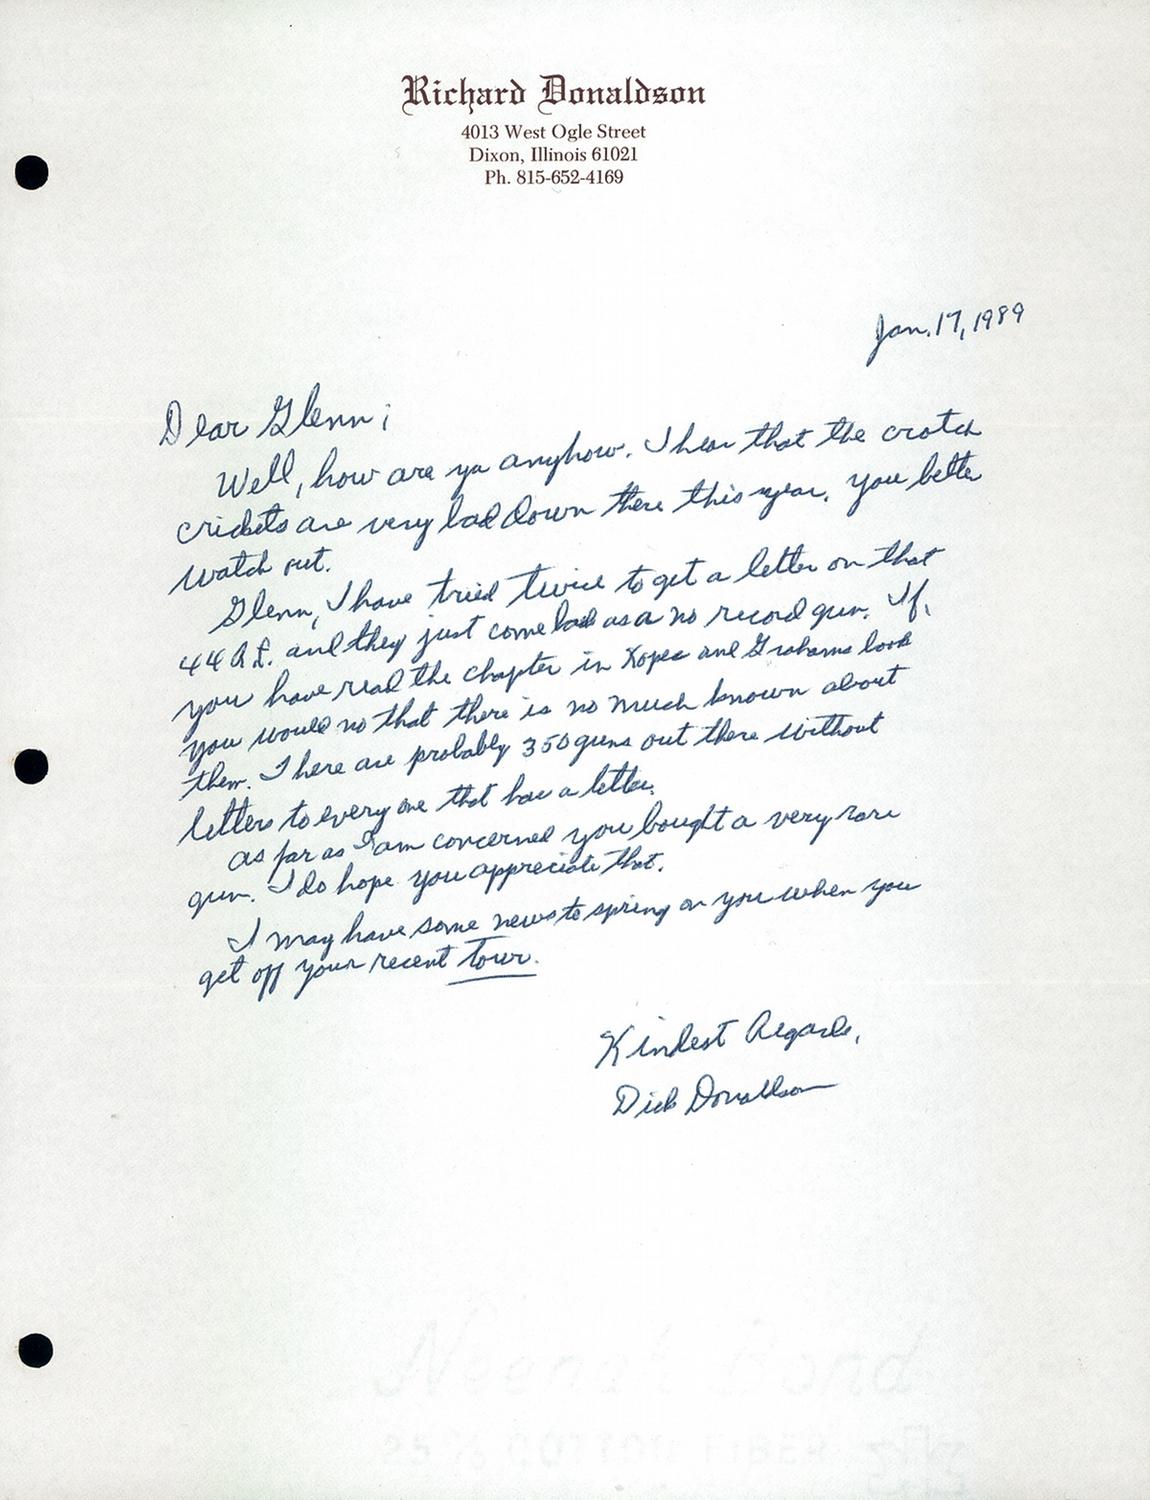 Richard Donaldson
4013 West Ogle Street
Dixon, Illinois 61021
Ph. 815-652-4169
Jan. 17, 1989
Dear Glenn;
Well, how are ya anyhow. I hear that the crotch
crickets are very bad down there this year. You better
watch out.
Glenn, I have tried twice to get a letter on that
44 R.F. and they just come back as a no record gun. If,
you have read the chapter in Kopec and Grahams book
you would no that there is no much known about
them. There are probably 350 guns out there without
letters to every one that has a letter.
As far as I am concerned you bought a very rare
gun. I do hope you appreciate that.
I may have some news to spring on you when you
get off your recent tour.
Kindest Regards,
Dick Donaldson
Neenah Bond
25% COTTON FIBER